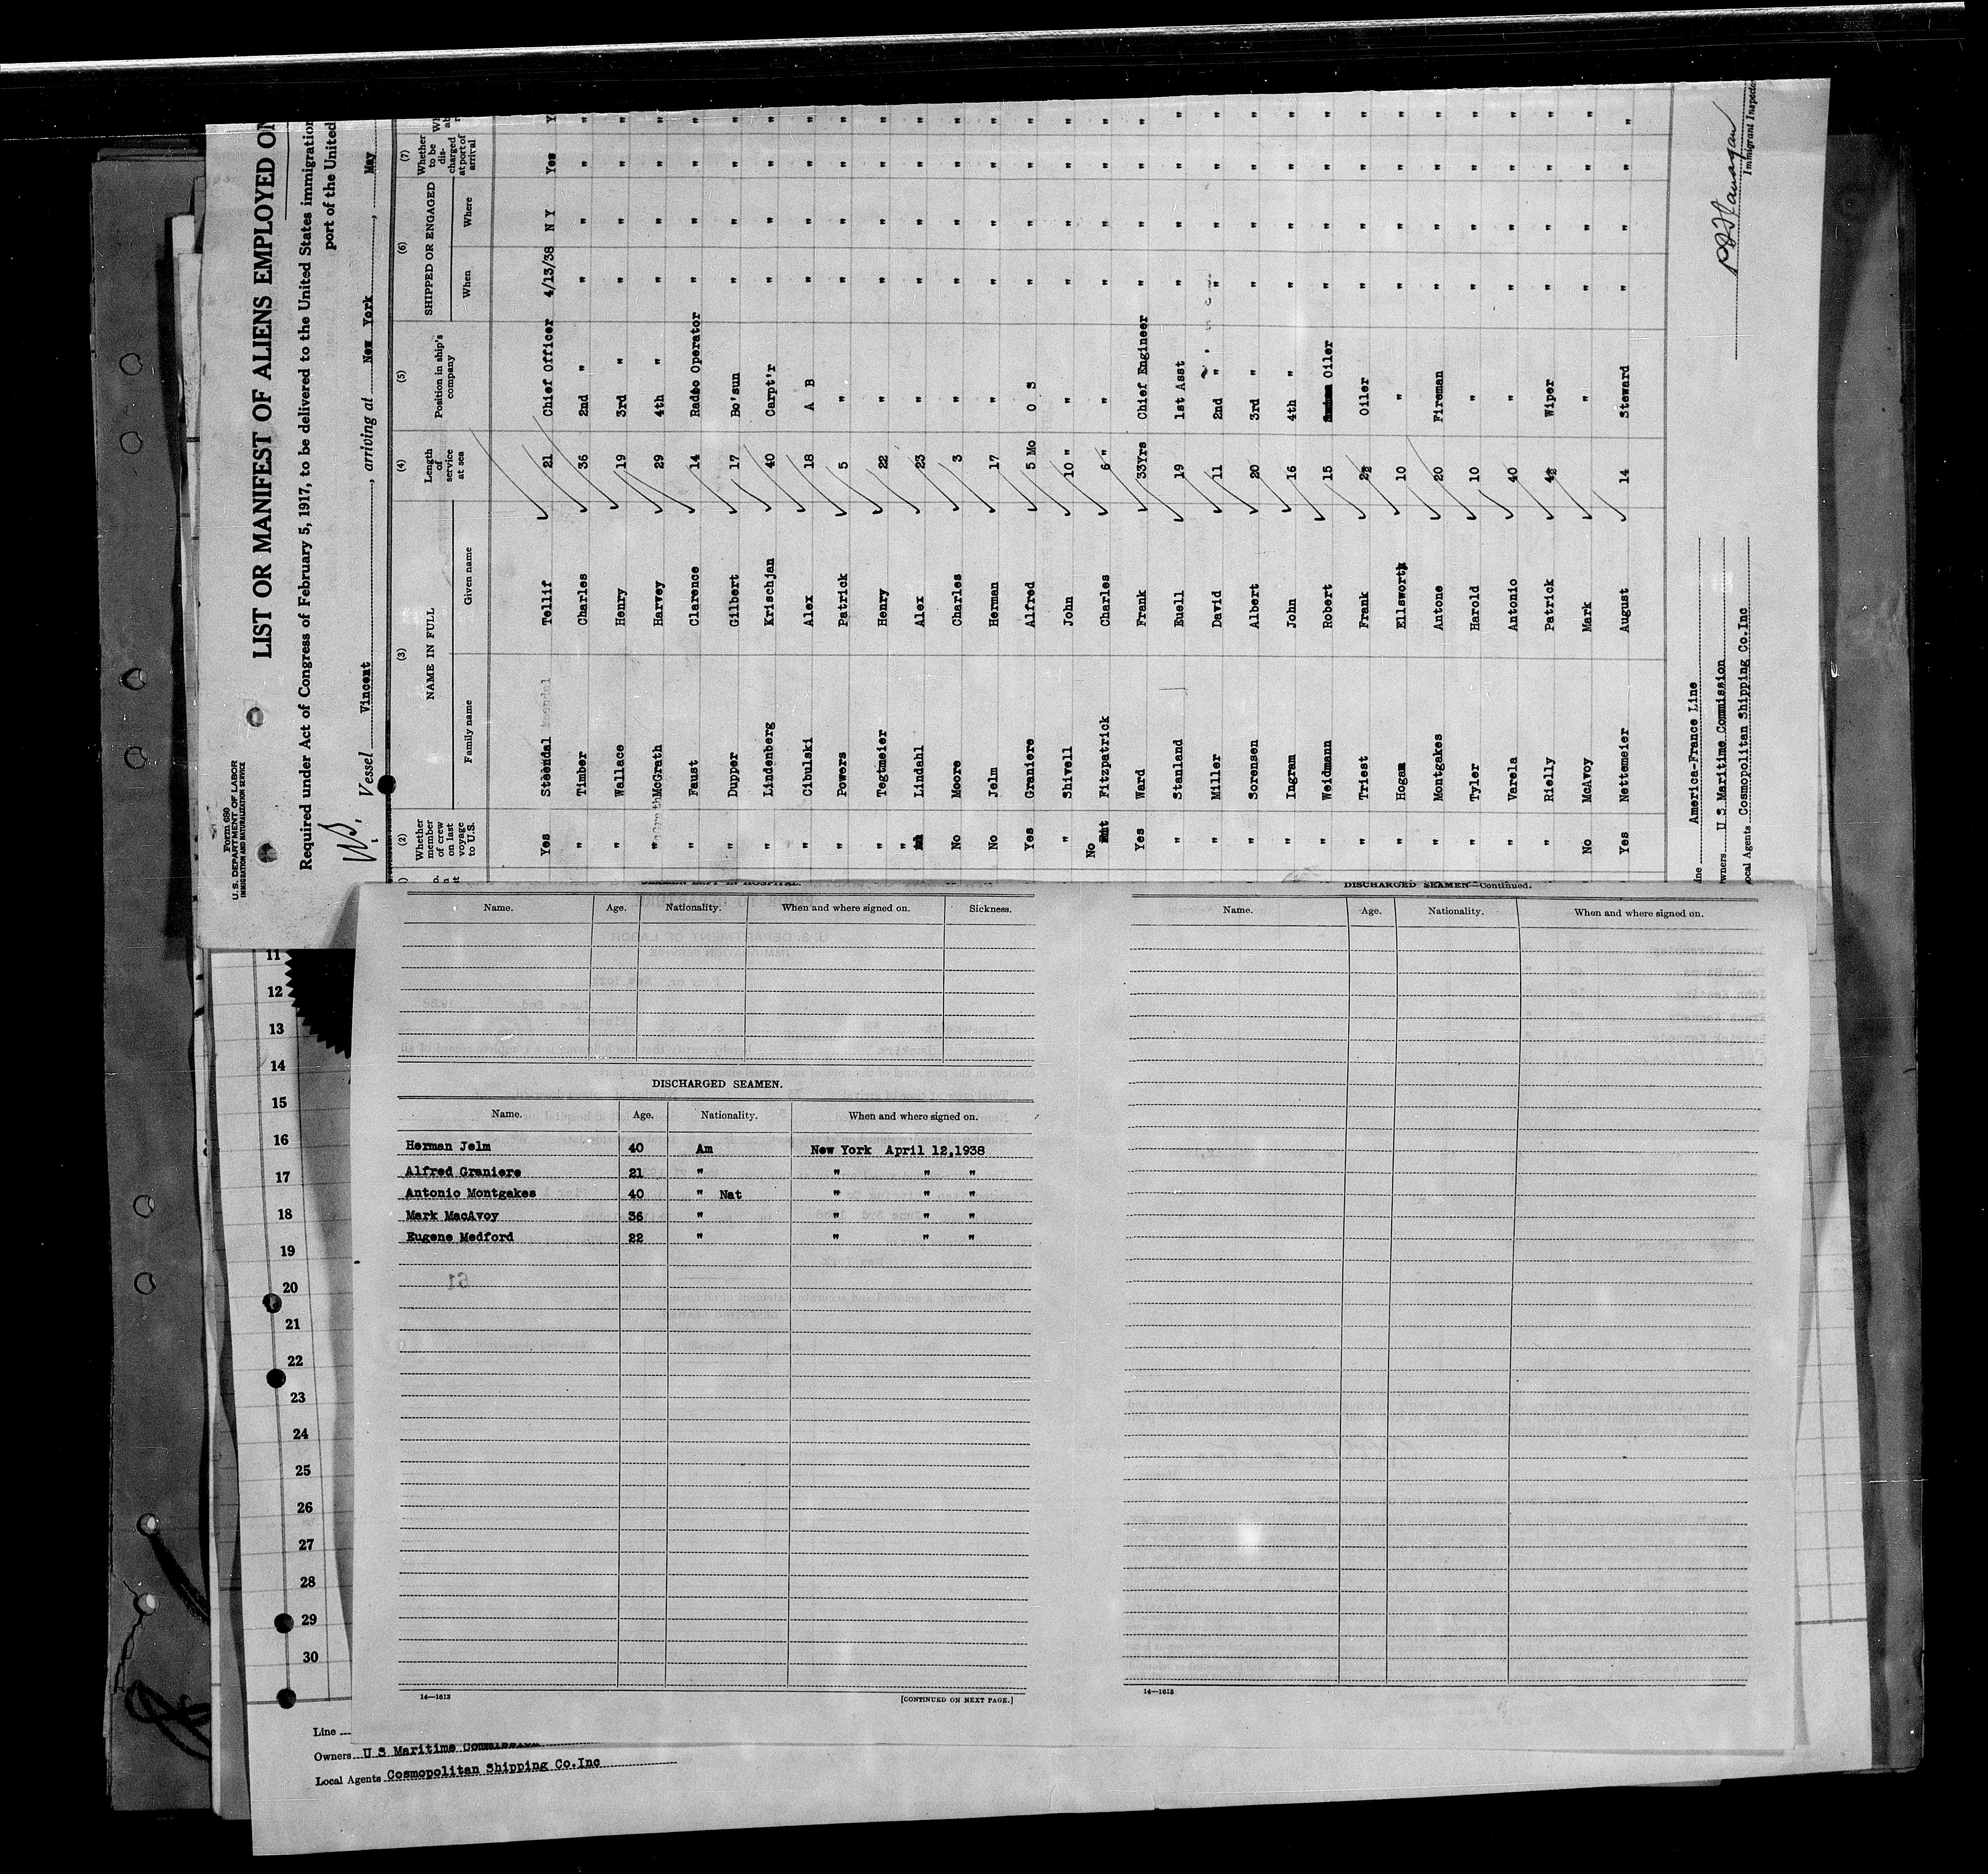 Form 680
U. S. DEPARTMENT OF LABOR
IMMIGRATION AND NATURALIZATION SERVICE
LIST OR MANIFEST OF ALIENS EMPLOYED ON
Required under Act of Congress of February 5, 1917, to be delivered to the United States immigration
port of the United
Vessel Vincent, arriving at New York, May
(2) (3) (4) (5) (6) (7)
Whether member of crew on last voyage to U.S. NAME IN FULL Family name Given name Length of service at sea Position in ship's company SHIPPED OR ENGAGED When Where Whether to be discharged at port of arrival
Yes Steendal Tellif 21 Chief Officer 4/13/38 N Y Yes Y
" Timber Charles 36 2nd " " " " "
" Wallace Henry 19 3rd " " " " "
" McGrath Harvey 29 4th " " " " "
" Faust Clarence 14 Radio Operator " " " "
" Dupper Gilbert 17 Bo'sun " " " "
" Lindenberg Krischjan 40 Carpt'r " " " "
" Cibulski Alex 18 A B " " " "
" Powers Patrick 5 " " " " "
" Tegtmeier Henry 22 " " " " "
" Lindahl Alex 23 " " " " "
No Moore Charles 3 " " " " "
No Jelm Herman 17 " " " " "
Yes Graniere Alfred 5 Mo O S " " " "
" Shivell John 10 " " " " " "
No Fitzpatrick Charles 6 " " " " " "
Yes Ward Frank 33Yrs Chief Engineer " " " "
" Stanland Euell 19 1st Asst " " " "
" Miller David 11 2nd " " " " "
" Sorensen Albert 20 3rd " " " " "
" Ingram John 16 4th " " " " "
" Weidmann Robert 15 Oiler " " " "
" Triest Frank 2½ Oiler " " " "
" Hogan Ellsworth 10 " " " " "
" Montgakes Antone 20 Fireman " " " "
" Tyler Harold 10 " " " " "
" Varela Antonio 40 " " " " "
" Rielly Patrick 4½ Wiper " " " "
No McAvoy Mark " " " " "
Yes Nettemeier August 14 Steward " " " "
America-France Line
U S Maritime Commission
Local Agents Cosmopolitan Shipping Co.Inc
Immigrant Inspector
SEAMEN LEFT IN HOSPITAL.
Name. Age. Nationality. When and where signed on. Sickness.
DISCHARGED SEAMEN.
Name. Age. Nationality. When and where signed on.
Herman Jelm 40 Am New York April 12,1938
Alfred Graniere 21 " " " "
Antonio Montgakes 40 " Nat " " "
Mark MacAvoy 36 " " " "
Eugene Medford 22 " " " "
14—1613
[CONTINUED ON NEXT PAGE.]
DISCHARGED SEAMEN—Continued.
Name. Age. Nationality. When and where signed on.
14—1613
11
12
13
14
15
16
17
18
19
20
21
22
23
24
25
26
27
28
29
30
Line
Owners U S Maritime Commission
Local Agents Cosmopolitan Shipping Co.Inc